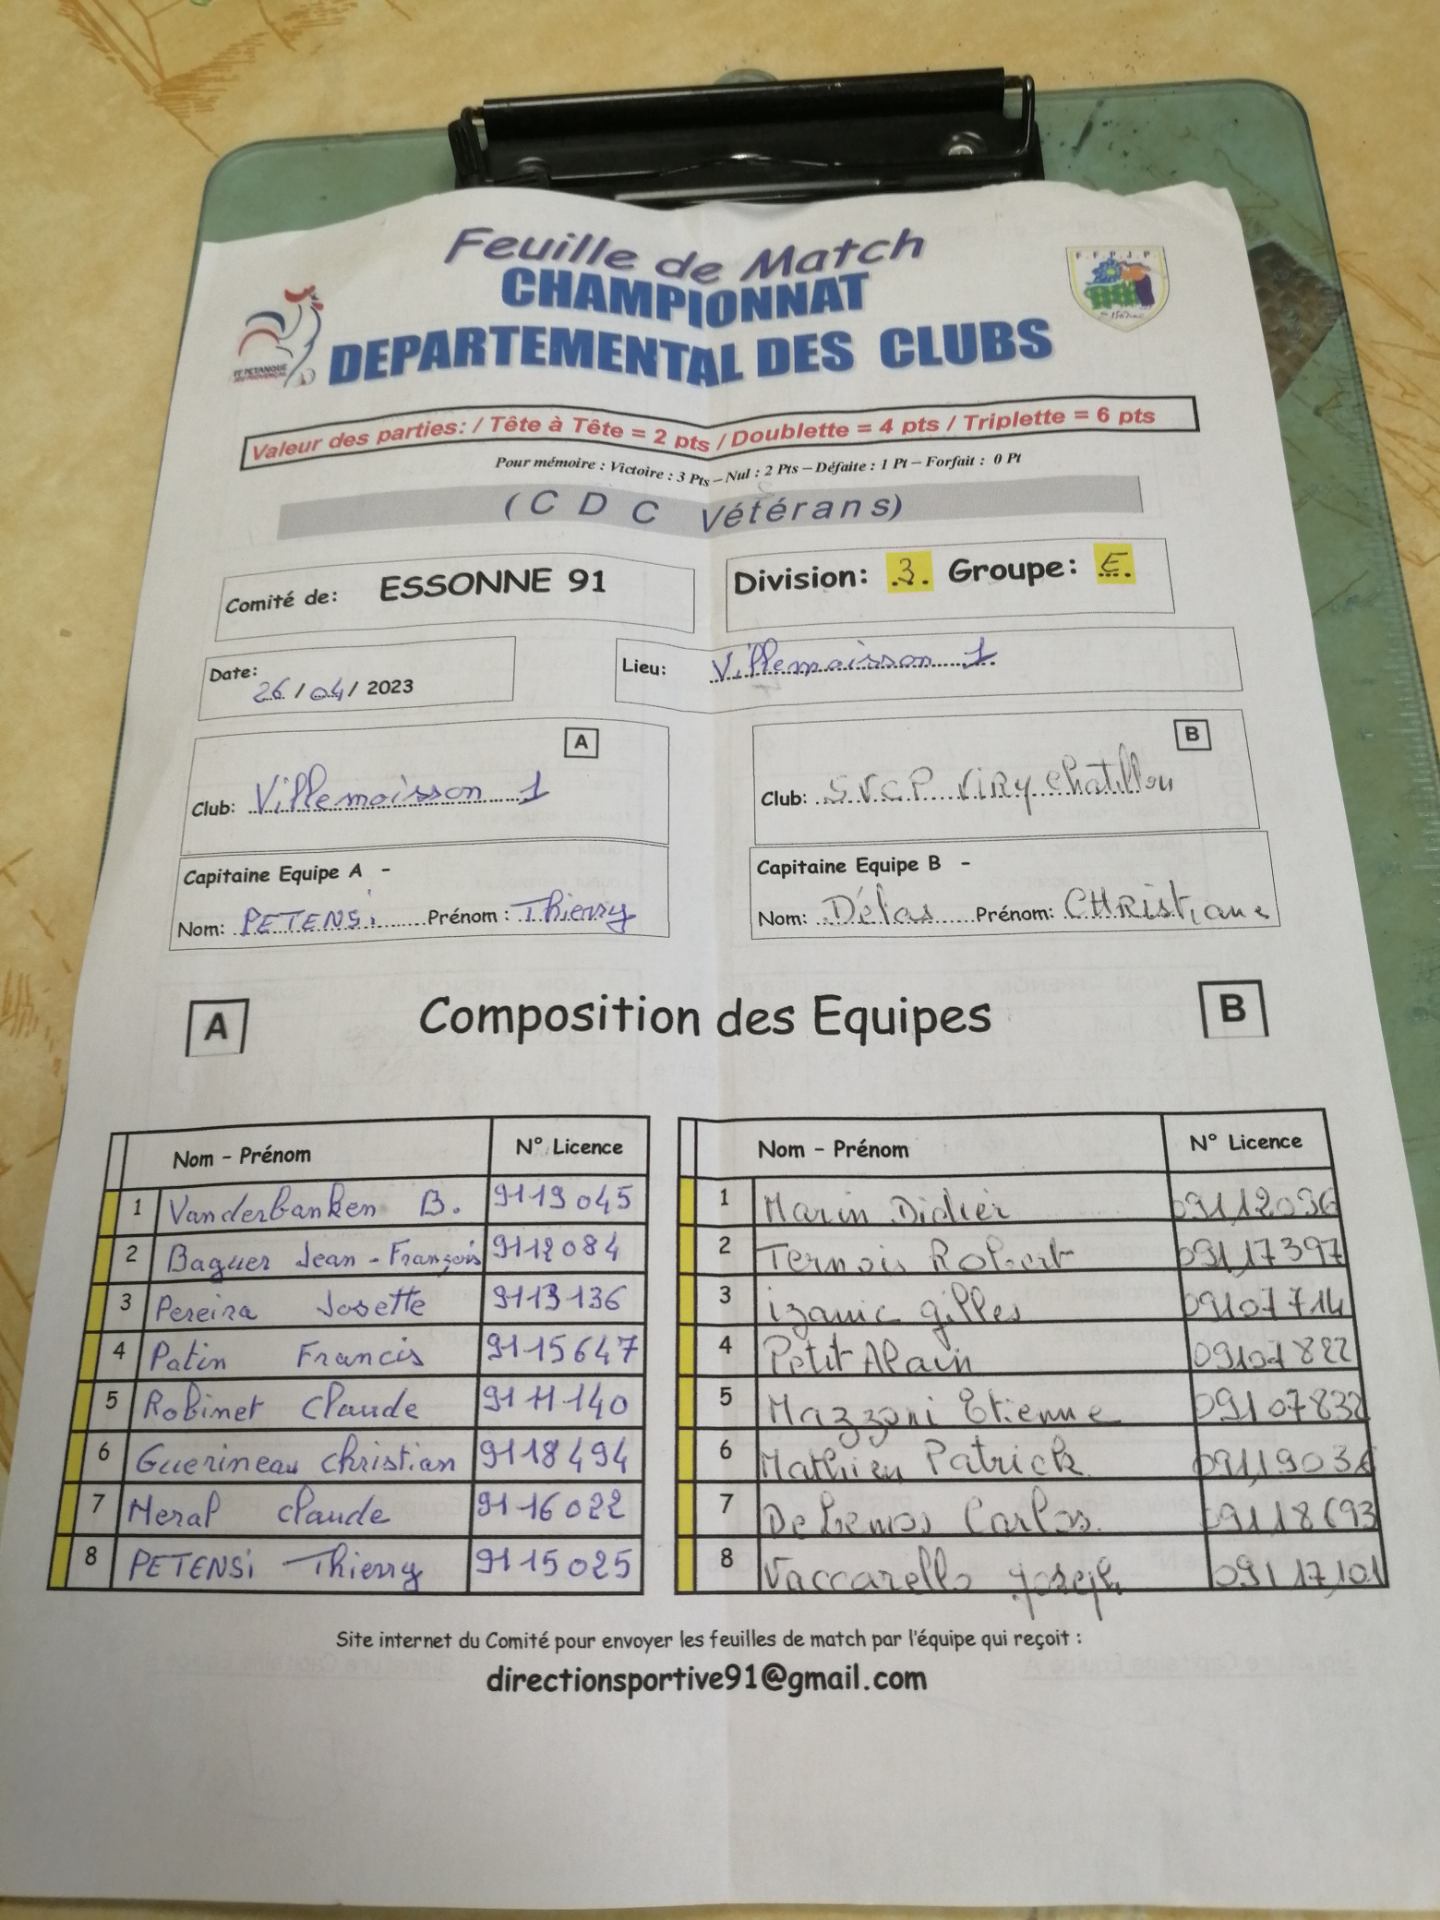 Feuille de Match
CHAMPIONNAT
DEPARTEMENTAL DES CLUBS
FF PETANQUE
F.F.P.J.P.
Valeur des parties: / Tête à Tête = 2 pts / Doublette = 4 pts / Triplette = 6 pts
Pour mémoire : Victoire : 3 Pts – Nul : 2 Pts – Défaite : 1 Pt – Forfait : 0 Pt
(CDC Vétérans)
Comité de: ESSONNE 91
Division: 3 Groupe: E
Date: 26/04/2023
Lieu: Villemoisson 1
A
Club: Villemoisson 1
B
Club: S.V.C.P VIRY Chatillon
Capitaine Equipe A -
Nom: PETENSi Prénom : Thierry
Capitaine Equipe B -
Nom: Délas Prénom: CHRistiane
A Composition des Equipes B
Nom - Prénom N° Licence
1 Vanderbanken B. 9119045
2 Baguer Jean-François 9112084
3 Pereira Josette 9113136
4 Patin Francis 9115647
5 Robinet Claude 9111140
6 Guerineau christian 9118494
7 Meral claude 9116022
8 PETENSi Thierry 9115025
Nom - Prénom N° Licence
1 Marin Didier 09112036
2 Ternois Robert 09117397
3 izanic gilles 09107714
4 Petit Alain 09107822
5 Mazzoni Etienne 09107832
6 Mathieu Patrick
7 De Lemos Carlos 09118693
8 Vaccarello joseph 09117101
Site internet du Comité pour envoyer les feuilles de match par l'équipe qui reçoit :
directionsportive91@gmail.com